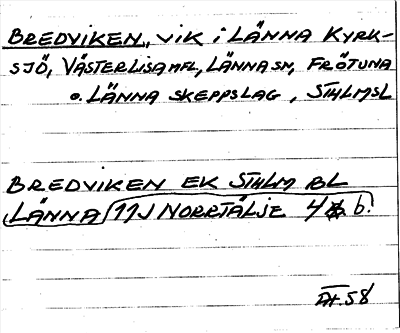 BREDVIKEN, VIK i LÄNNA KYRK-
SJÖ, VÄSTERLISA MFL, LÄNNA SN, FRÖTUNA
o. LÄNNA SKEPPSLAG, STHLMSL
BREDVIKEN EK STHLM BL
LÄNNA 11J NORRTÄLJE 4 b.
58